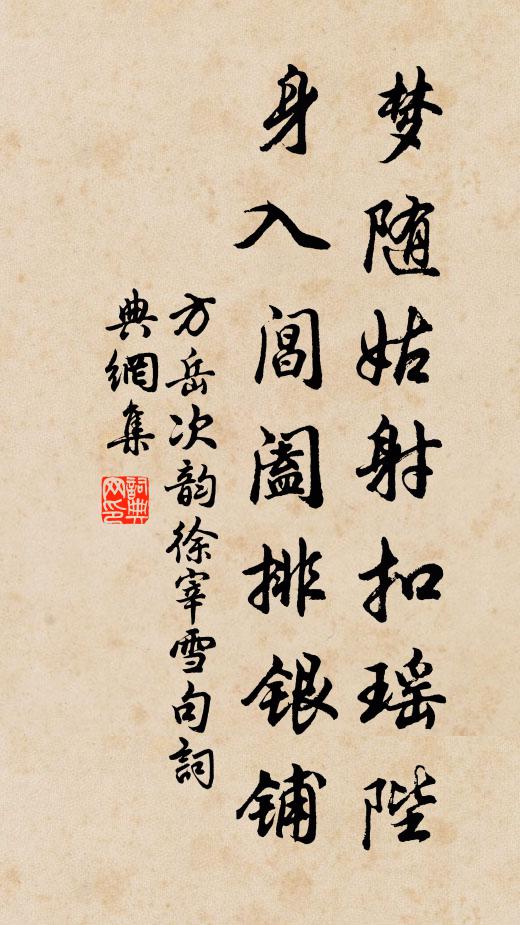 梦随姑射扣瑶陛
身入阊阖排银铺
方岳次韵徐宰雪句詞
典網集
詞典网印